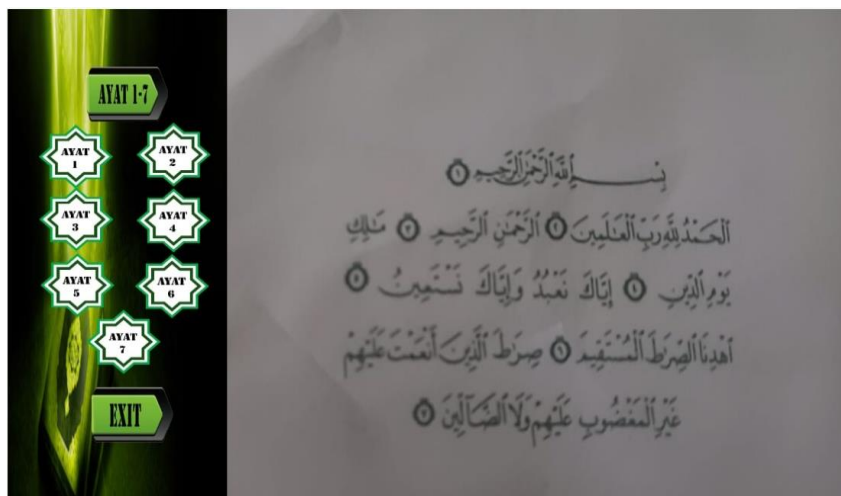 AYAT 1-7
AYAT 1
AYAT 2
AYAT 3
AYAT 4
AYAT 5
AYAT 6
AYAT 7
EXIT
بِسْمِ ٱللَّهِ ٱلرَّحْمَٰنِ ٱلرَّحِيمِ ١
ٱلْحَمْدُ لِلَّهِ رَبِّ ٱلْعَٰلَمِينَ ٢ ٱلرَّحْمَٰنِ ٱلرَّحِيمِ ٣ مَٰلِكِ
يَوْمِ ٱلدِّينِ ٤ إِيَّاكَ نَعْبُدُ وَإِيَّاكَ نَسْتَعِينُ ٥
ٱهْدِنَا ٱلصِّرَٰطَ ٱلْمُسْتَقِيمَ ٦ صِرَٰطَ ٱلَّذِينَ أَنْعَمْتَ عَلَيْهِمْ
غَيْرِ ٱلْمَغْضُوبِ عَلَيْهِمْ وَلَا ٱلضَّآلِّينَ ٧